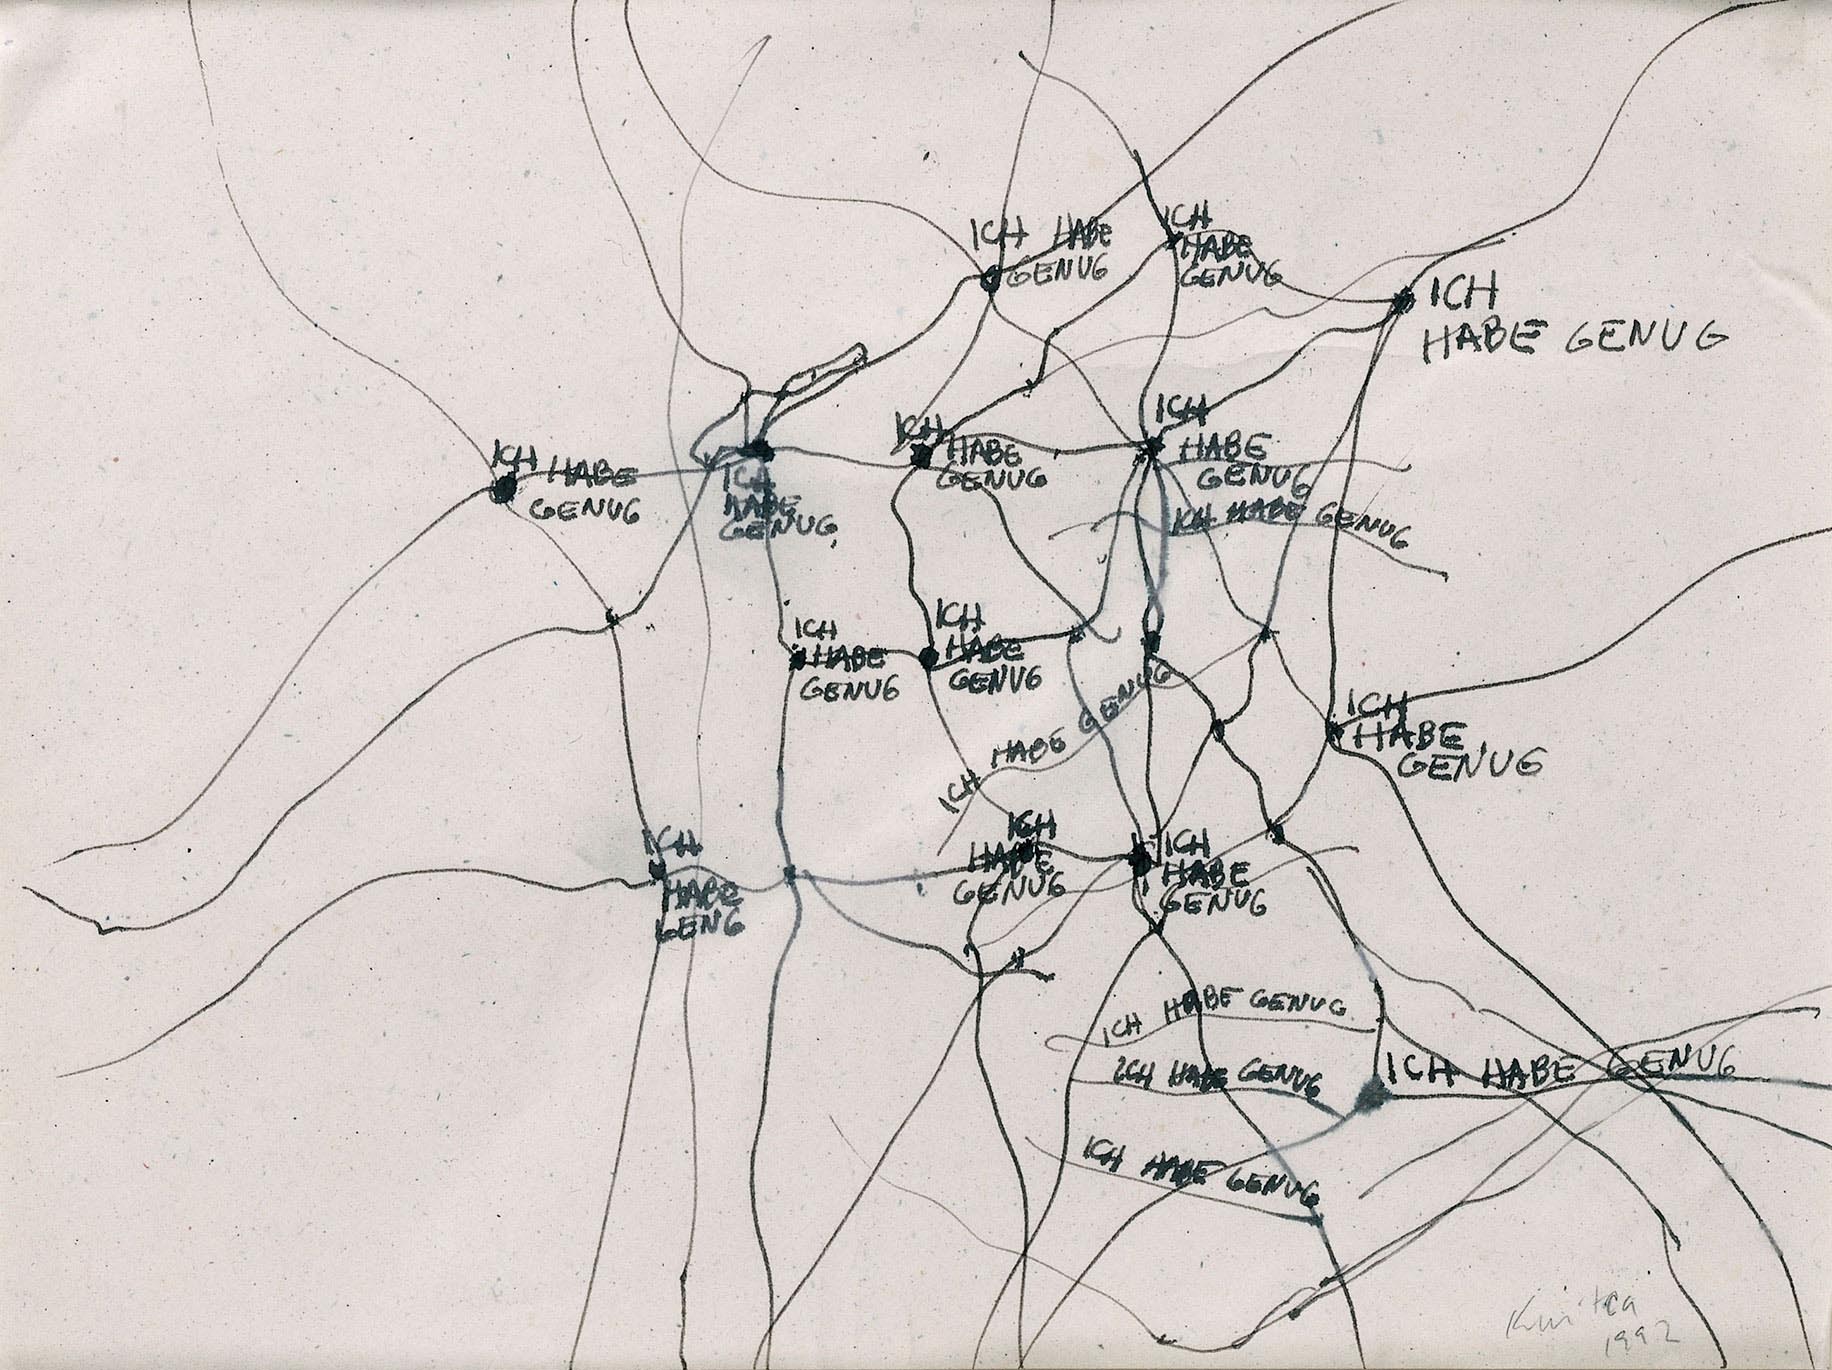 ICH HABE
GENUG
ICH
HABE
GENUG
ICH
HABE GENUG
ICH HABE
GENUG
ICH
HABE
GENUG
ICH
HABE
GENUG
ICH
HABE
GENUG
ICH HABE GENUG
ICH
HABE
GENUG
ICH
HABE
GENUG
ICH HABE GENUG
ICH
HABE
GENUG
ICH
HABE
GENG
ICH
HABE
GENUG
ICH
HABE
GENUG
ICH HABE GENUG
ICH HABE GENUG
ICH HABE GENUG
ICH HABE GENUG
Kuitca
1992